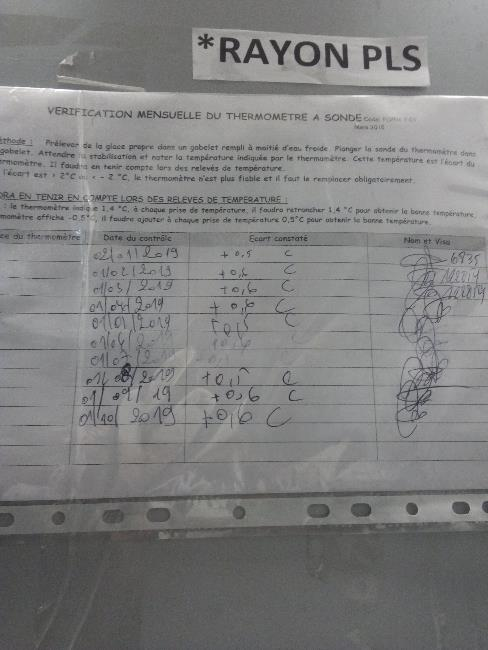 *RAYON PLS
VERIFICATION MENSUELLE DU THERMOMETRE A SONDE
Mars 2015
Prélever de la glace propre dans un gobelet rempli à moitié d'eau froide. Plonger la sonde du thermomètre dans
gobelet. Attendre la stabilisation et noter la température indiquée par le thermomètre. Cette température est l'écart du
Il faudra en tenir compte lors des relevés de température.
l'écart est > 2°C ou < - 2 °C, le thermomètre n'est plus fiable et il faut le remplacer obligatoirement.
EN TENIR EN COMPTE LORS DES RELEVES DE TEMPERATURE :
: le thermomètre indique 1,4 °C, à chaque prise de température, il faudra retrancher 1,4 °C pour obtenir la bonne température.
affiche -0,5°C, il faudra ajouter à chaque prise de température 0,5°C pour obtenir la bonne température.
du thermomètre Date du contrôle Ecart constaté Nom et Visa
02/01/2019 +0,5 C 6835
01/02/2019 +0,6 C
01/03/2019 +0,6 C
01/04/2019 +0,6 C
2019 +0,5 C
2019
2019
2019 C
01/09/19 +0,6 C
01/10/2019 +0,6 C